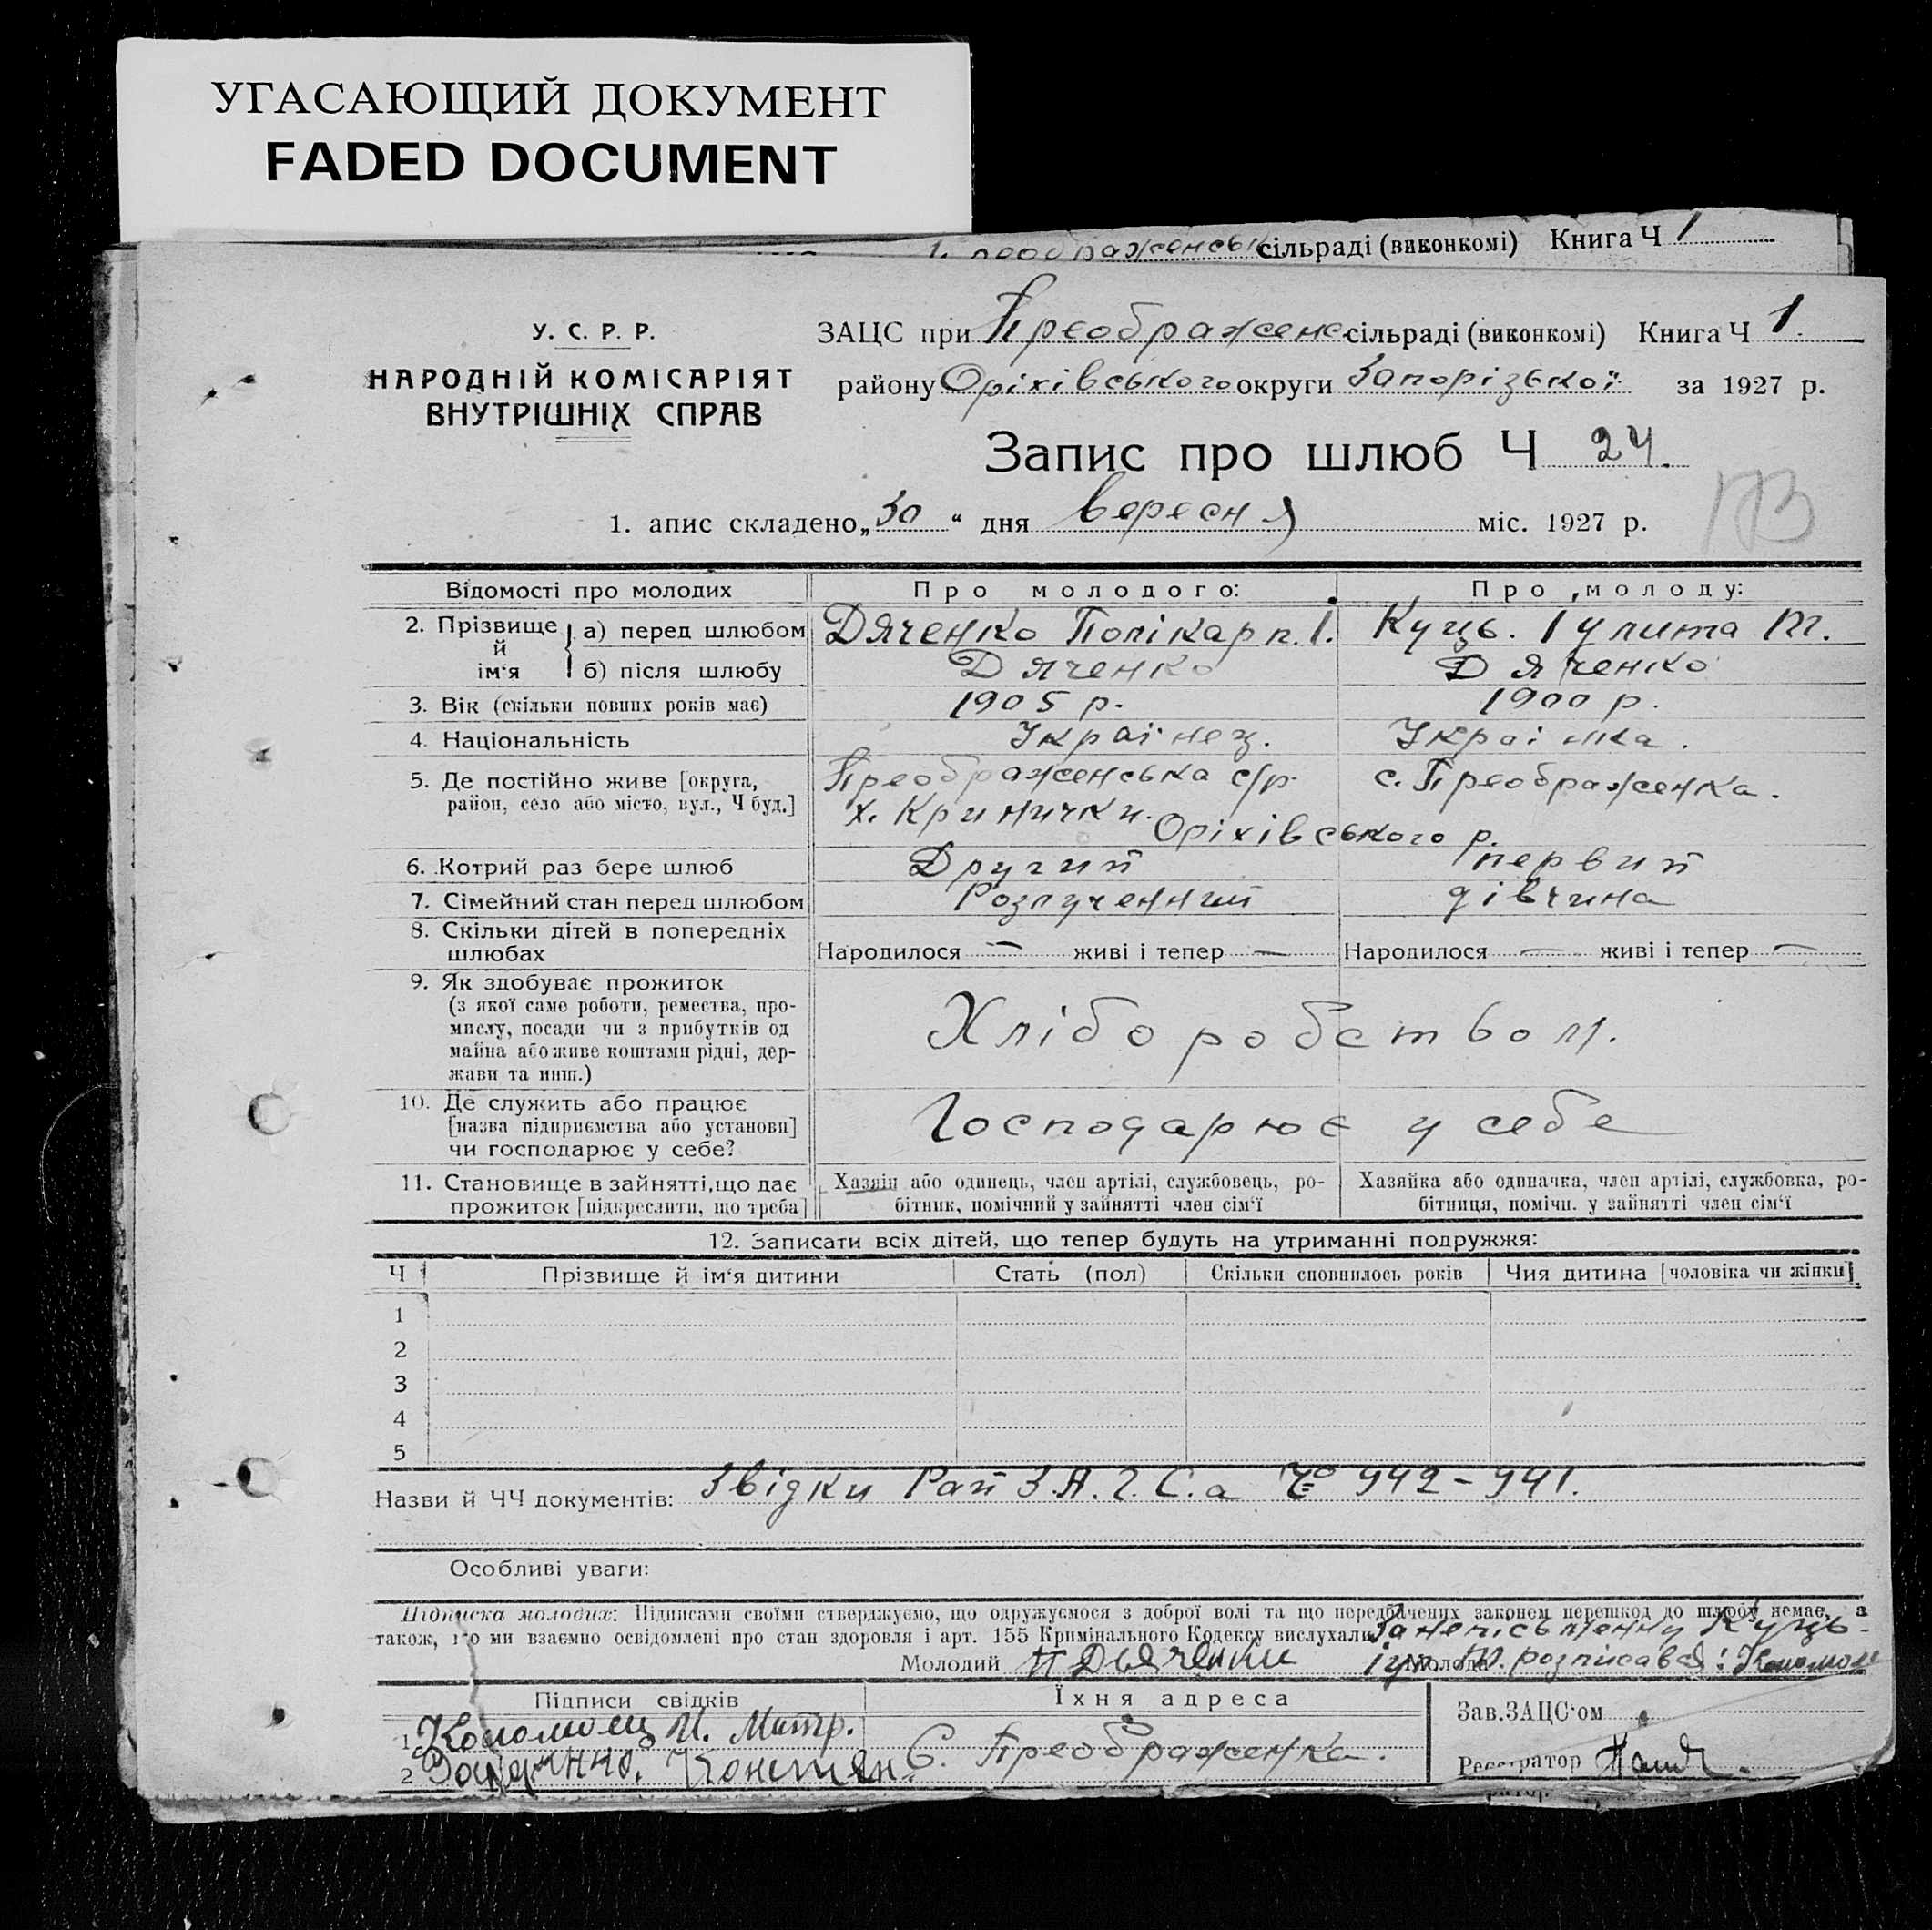 УГАСАЮЩИЙ ДОКУМЕНТ
FADED DOCUMENT
сільраді (виконкомі) Книга Ч 1
У. С. Р. Р.
НАРОДНІЙ КОМІСАРІЯТ
ВНУТРІШНІХ СПРАВ
ЗАЦС при Преображенс сільраді (виконкомі) Книга Ч 1.
району Оріхівського округи Запорізької за 1927 р.
Запис про шлюб Ч 24.
1. апис складено „30“ дня вересня міс. 1927 р.
Відомості про молодих Про молодого: Про молоду:
2. Прізвище й ім‘я а) перед шлюбом Дяченко Полікарп. І. Куць. Іулита М.
б) після шлюбу Дяченко Дяченко
3. Вік (скільки повних років має) 1905 р. 1900 р.
4. Національність Українец. Українка.
5. Де постійно живе [округа, Преображенська с/р. с. Преображенка.
район, село або місто, вул., Ч буд.] х. Кринички. Оріхівського р.
6. Котрий раз бере шлюб Другий первий
7. Сімейний стан перед шлюбом Розлученний дівчина
8. Скільки дітей в попередніх
шлюбах Народилося — живі і тепер — Народилося — живі і тепер —
9. Як здобуває прожиток
(з якої саме роботи, ремества, про-
мислу, посади чи з прибутків од
майна або живе коштами рідні, дер-
жави та инш.)
Хліборобством.
10. Де служить або працює
[назва підприємства або установи]
чи господарює у себе?
Господарює у себе
11. Становище в зайнятті, що дає Хазяїн або одинець, член артілі, службовець, ро- Хазяйка або одиначка, член артілі, службовка, ро-
прожиток [підкреслити, що треба] бітник, помічний у зайнятті член сім‘ї бітниця, помічн. у зайнятті член сім‘ї
12. Записати всіх дітей, що тепер будуть на утриманні подружжя:
Ч Прізвище й ім‘я дитини Стать (пол) Скільки сповнилось років Чия дитина [чоловіка чи жінки]
1
2
3
4
5
Назви й ЧЧ документів: Звідки Рай З.А.Г.С.а Ч° 942-941.
Особливі уваги:
Підписка молодих: Підписами своїми стверджуємо, що одружуємося з доброї волі та що передбачених законем перешкод до шлюбу немає, а
також, що ми взаємно освідомлені про стан здоровля і арт. 155 Кримінального Кодексу вислухали. За неписьменну Куць
Молодий П Дьяченко Молода розписався: Коломоец
Підписи свідків Їхня адреса Зав. ЗАЦС‘ом
1 Коломоец И. Митр.
2 Констян С. Преображенка. Реєстратор